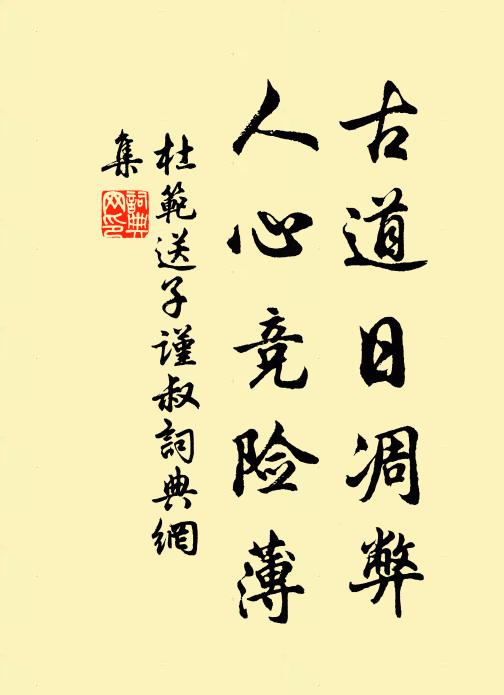 古道日凋弊
人心竞险薄
杜範送子谨叔詞典網
集
詞典网印